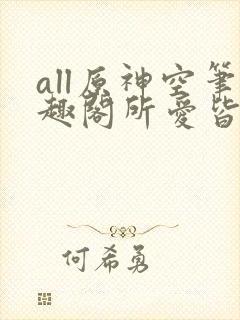 all原神空笔
趣阁所爱皆
何希勇